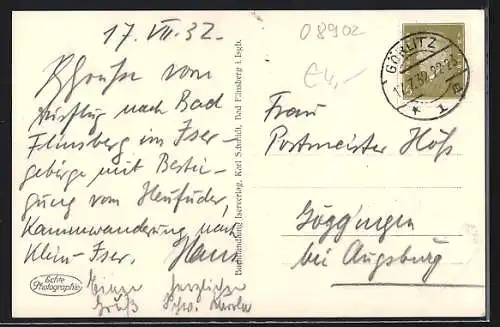 17. VII. 32.
Grüße vom
Ausflug nach Bad
Flinsberg im Iser-
gebirge mit Bestei-
gung vom Heufuder,
Kammwanderung nach
Klein-Iser. Hans
herzliche
Gruß
Echte
Photographie
Buchhandlung Iserverlag, Karl Schmidt, Bad Flinsberg i. Isgb.
08902
€4,-
GÖRLITZ
17.7.32.22-23
* 1
Frau
Postmeister Höß
Göggingen
bei Augsburg